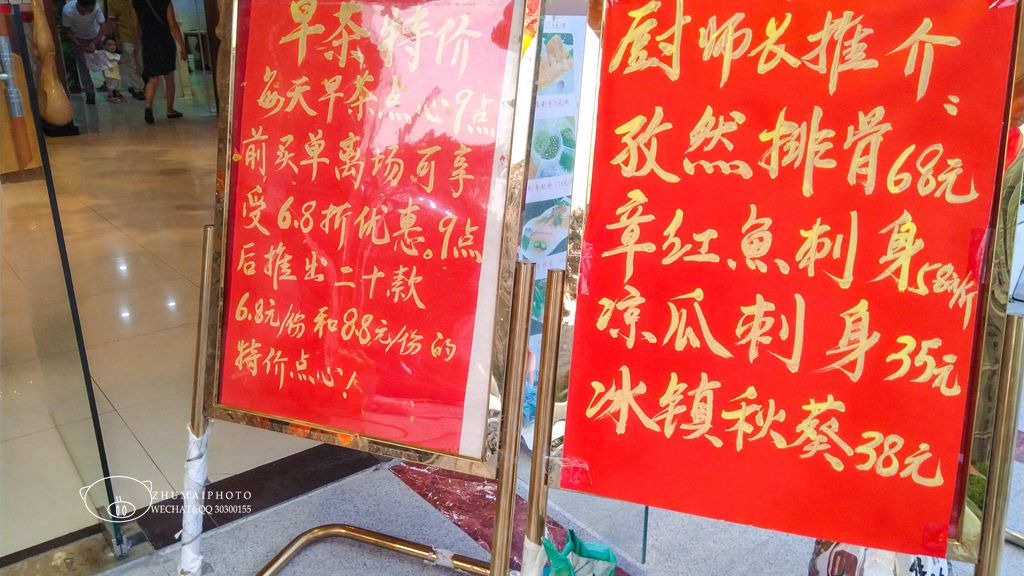 早茶特价
每天早茶点心9点
前买单离场可享
受6.8折优惠。9点
后推出二十款
6.8元/份和8.8元/份的
特价点心!
厨师长推介:
孜然排骨68元
章红魚刺身58元/斤
凉瓜刺身35元
冰镇秋葵38元
ZHUMAIPHOTO
WECHAT&QQ 30300155